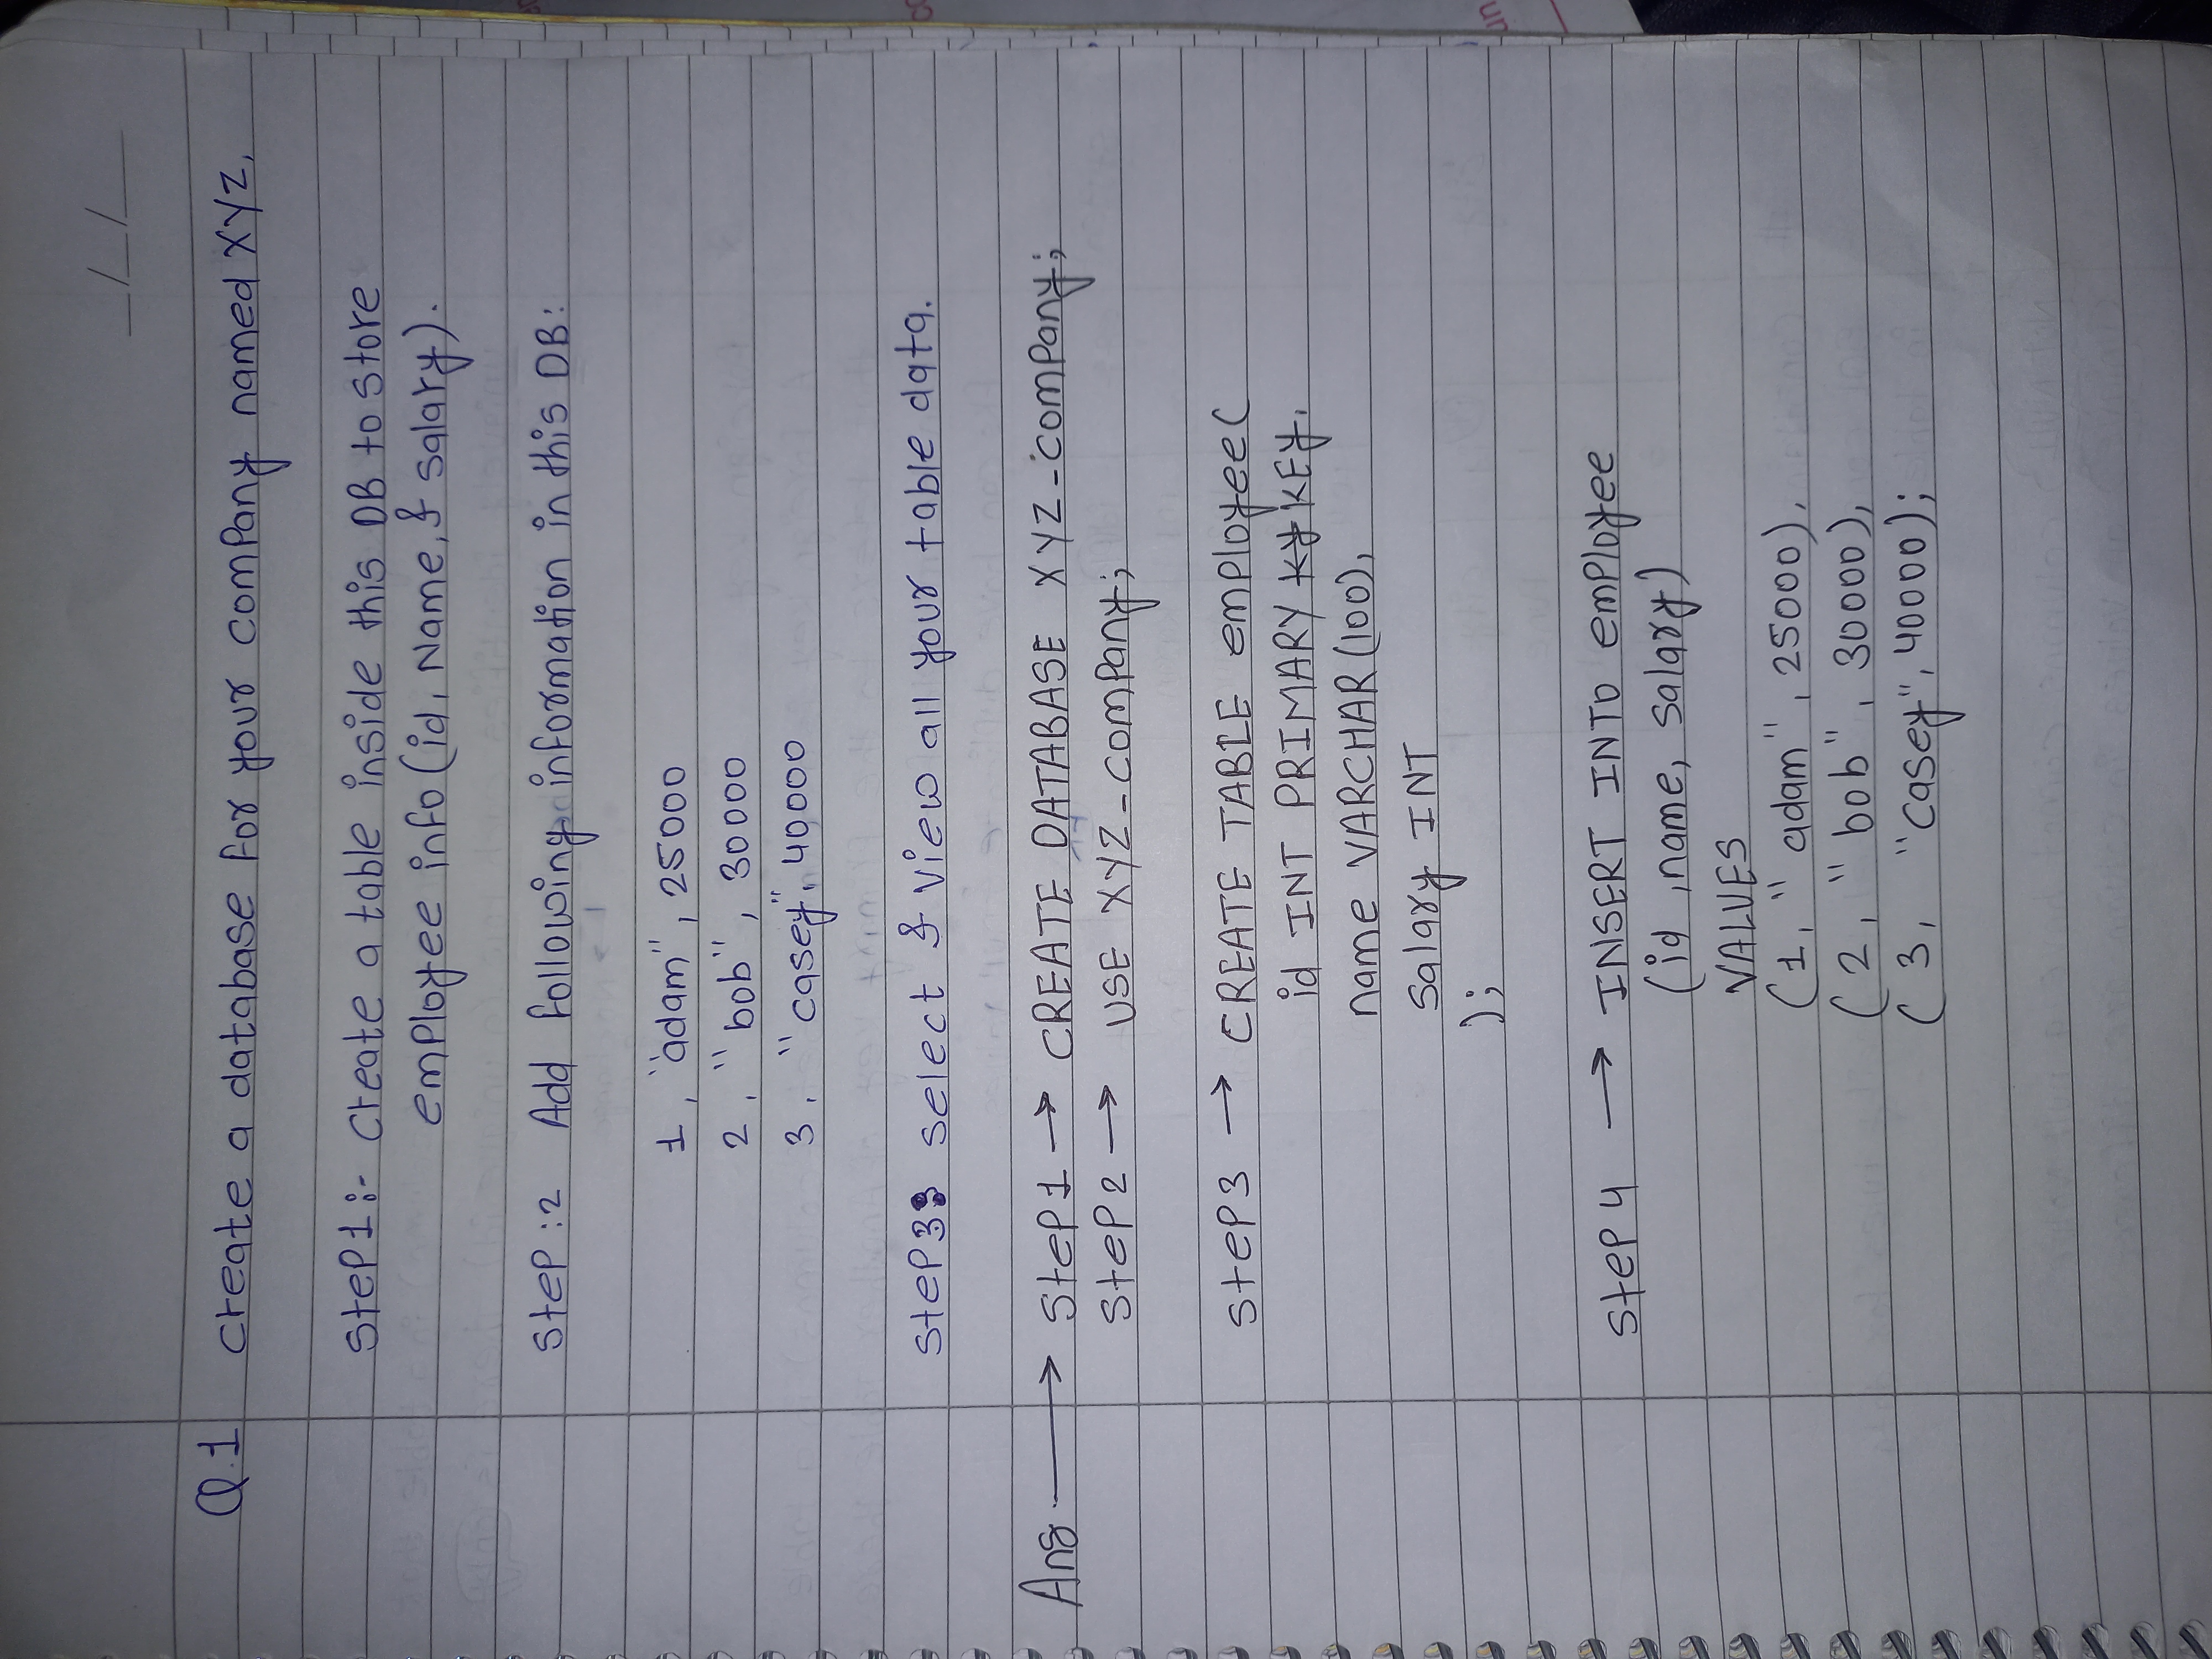 __/__/____
Q.1 Create a database for your company named XYZ.
Step1:- Create a table inside this DB to store
employee info (id, Name, & salary).
Step:2 Add following information in this DB:
1, "adam", 25000
2, "bob", 30000
3, "casey", 40000
Step3: select & View all your table data.
Ans → Step1 → CREATE DATABASE XYZ_company;
Step2 → USE XYZ_company;
Step3 → CREATE TABLE employee(
id INT PRIMARY KEY,
name VARCHAR(100),
Salary INT
);
Step4 → INSERT INTO employee
(id, name, salary)
VALUES
(1, "adam", 25000),
(2, "bob", 30000),
(3, "casey", 40000);